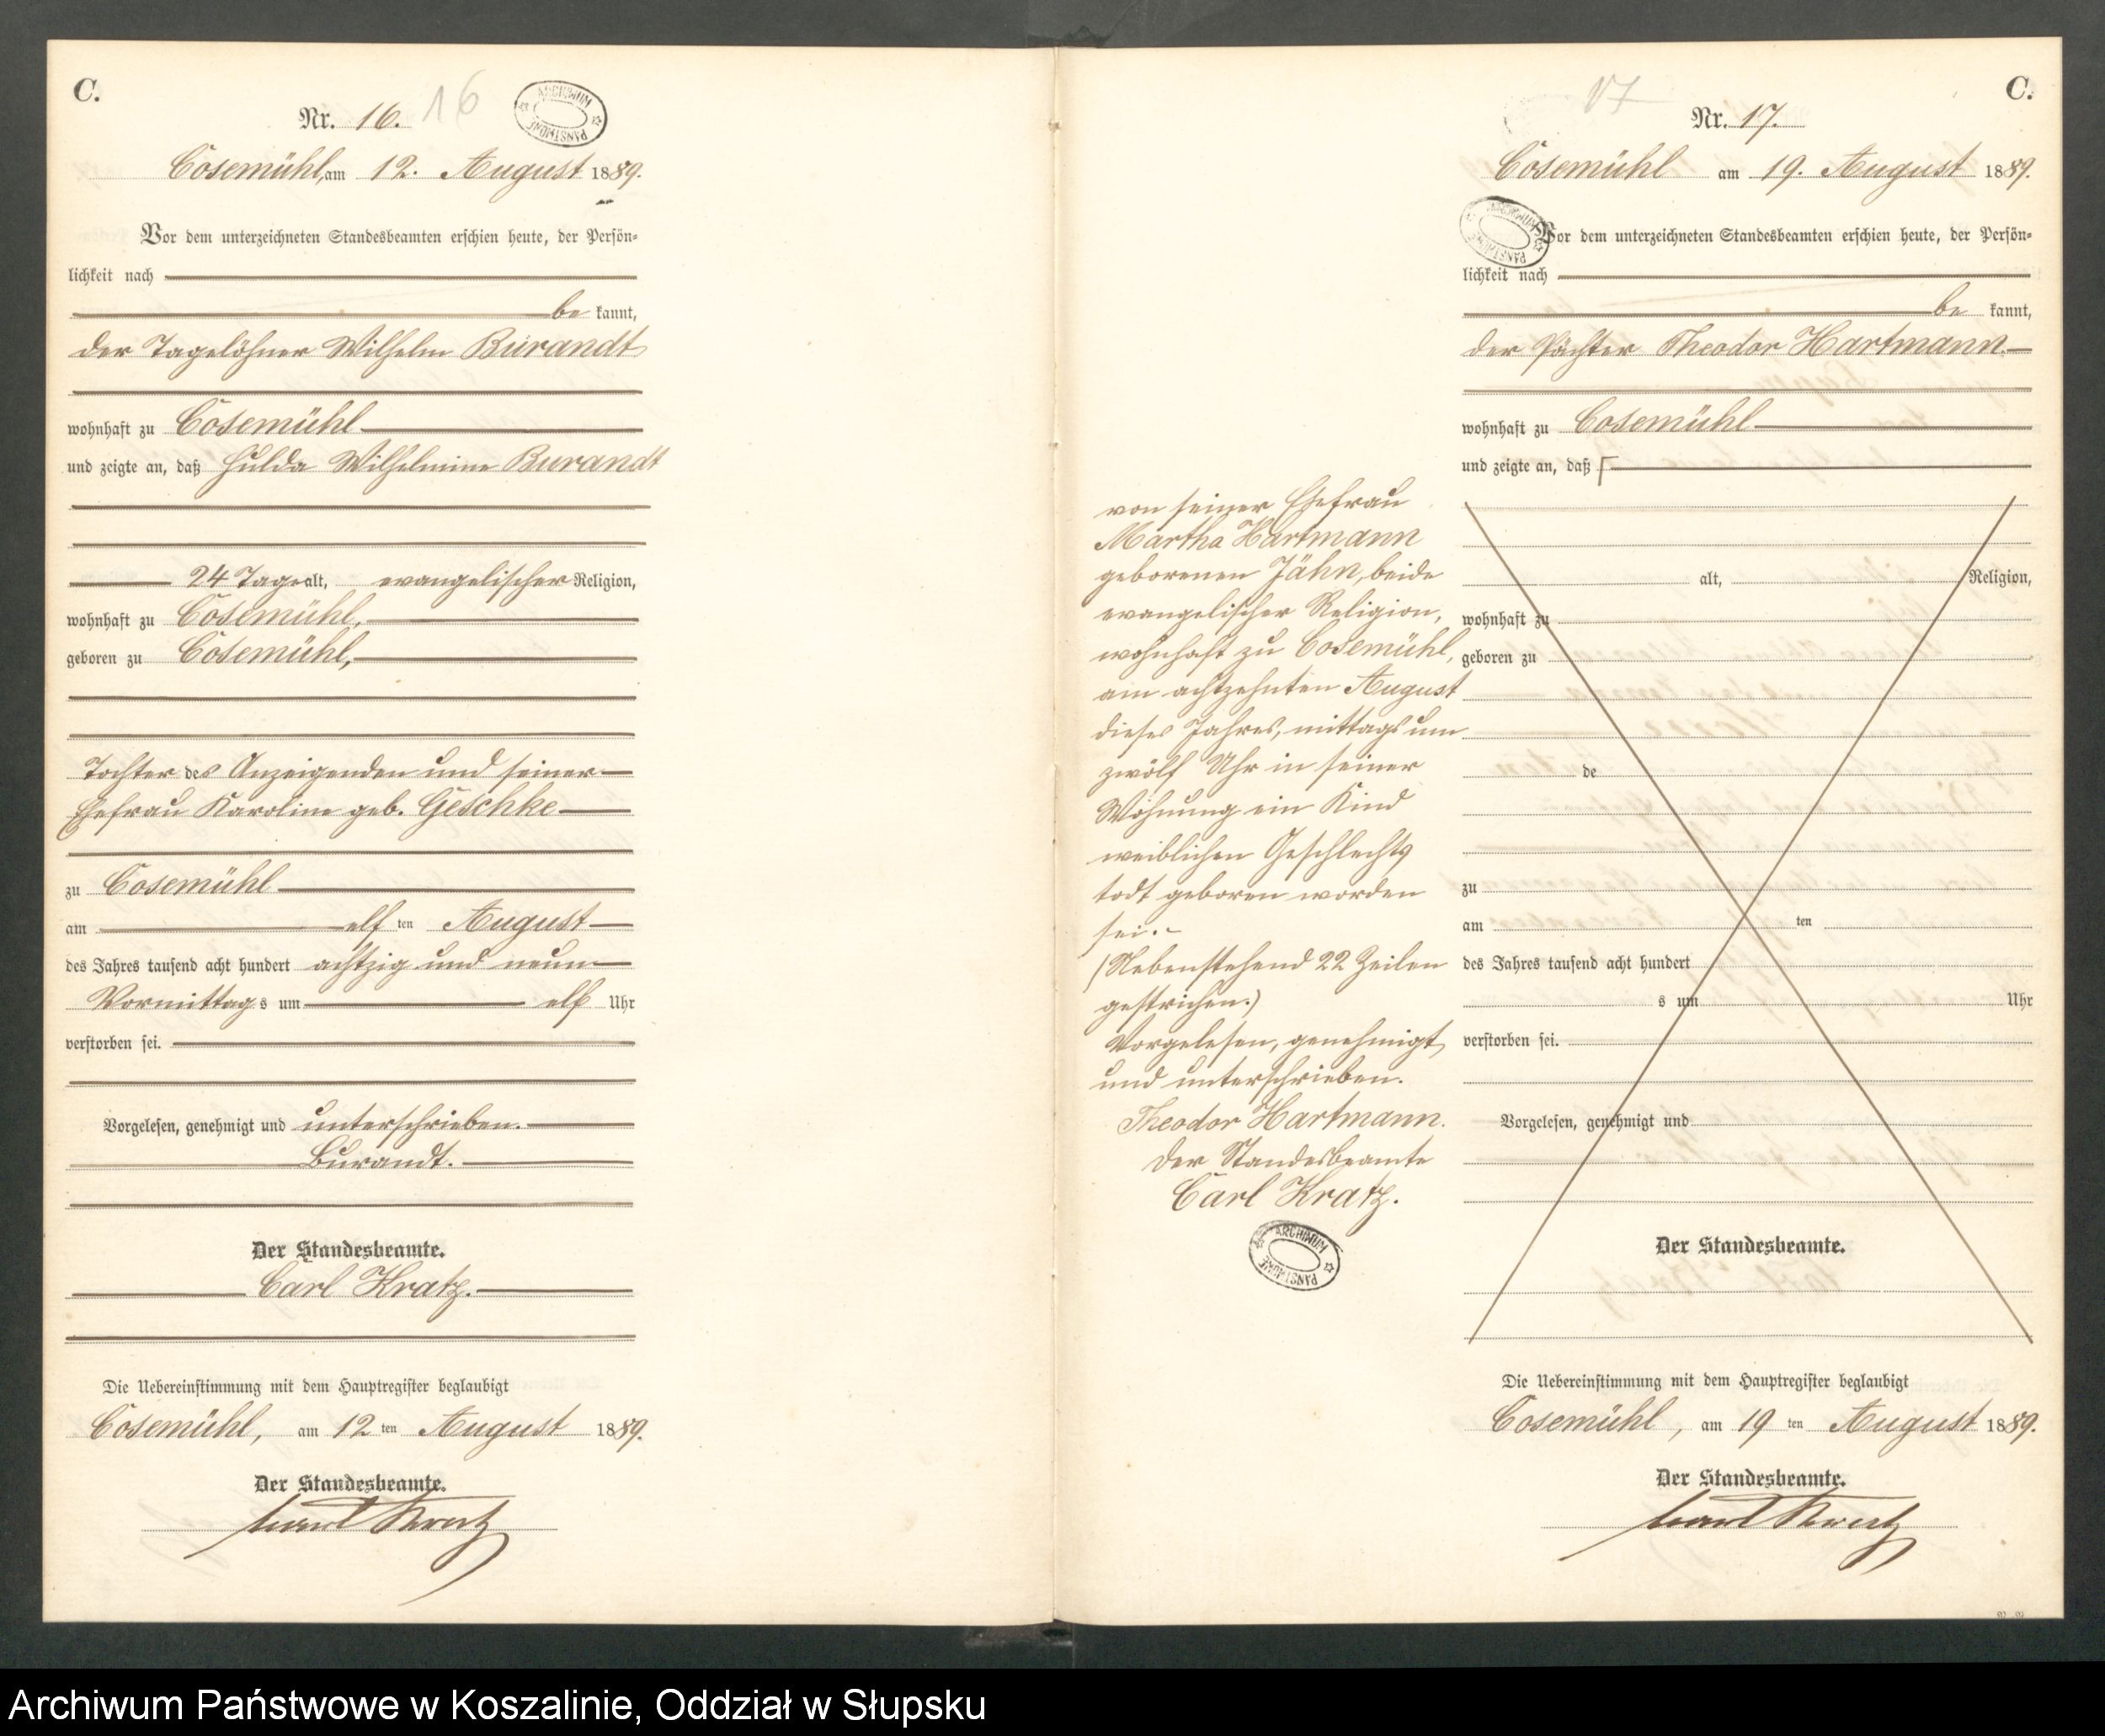 C.
Nr. 16. 16
ARCHIWUM PAŃSTWOWE
Cosemühl, am 12. August 1889.
Vor dem unterzeichneten Standesbeamten erschien heute, der Persön-
lichkeit nach
be kannt,
der Tagelöhner Wilhelm Burandt
wohnhaft zu Cosemühl
und zeigte an, daß Hulda Wilhelmine Burandt
24 Tage alt, evangelischer Religion,
wohnhaft zu Cosemühl,
geboren zu Cosemühl,
Tochter des Anzeigenden und seiner
Ehefrau Karoline geb. Geschke
zu Cosemühl
am elf ten August
des Jahres tausend acht hundert achtzig und neun
Vormittag s um elf Uhr
verstorben sei.
Vorgelesen, genehmigt und unterschrieben.
Burandt.
Der Standesbeamte.
Carl Kratz.
Die Uebereinstimmung mit dem Hauptregister beglaubigt
Cosemühl, am 12 ten August 1889.
Der Standesbeamte.
Carl Kratz
C.
17
Nr. 17.
Cosemühl am 19. August 1889.
ARCHIWUM PAŃSTWOWE
Vor dem unterzeichneten Standesbeamten erschien heute, der Persön-
lichkeit nach
be kannt,
der Pächter Theodor Hartmann
wohnhaft zu Cosemühl
und zeigte an, daß
von seiner Ehefrau
Martha Hartmann
geborenen Jähn, beide
evangelischer Religion,
wohnhaft zu Cosemühl,
am achtzehnten August
dieses Jahres, mittags um
zwölf Uhr in seiner
Wohnung ein Kind
weiblichen Geschlechts
todt geboren worden
sei.-
(Nebenstehend 22 Zeilen
gestrichen.)
Vorgelesen, genehmigt
und unterschrieben.
Theodor Hartmann.
Der Standesbeamte
Carl Kratz.
ARCHIWUM PAŃSTWOWE
alt, Religion,
wohnhaft zu
geboren zu
de
zu
am ten
des Jahres tausend acht hundert
s um Uhr
verstorben sei.
Vorgelesen, genehmigt und
Der Standesbeamte.
Die Uebereinstimmung mit dem Hauptregister beglaubigt
Cosemühl, am 19 ten August 1889.
Der Standesbeamte.
Carl Kratz
Archiwum Państwowe w Koszalinie, Oddział w Słupsku